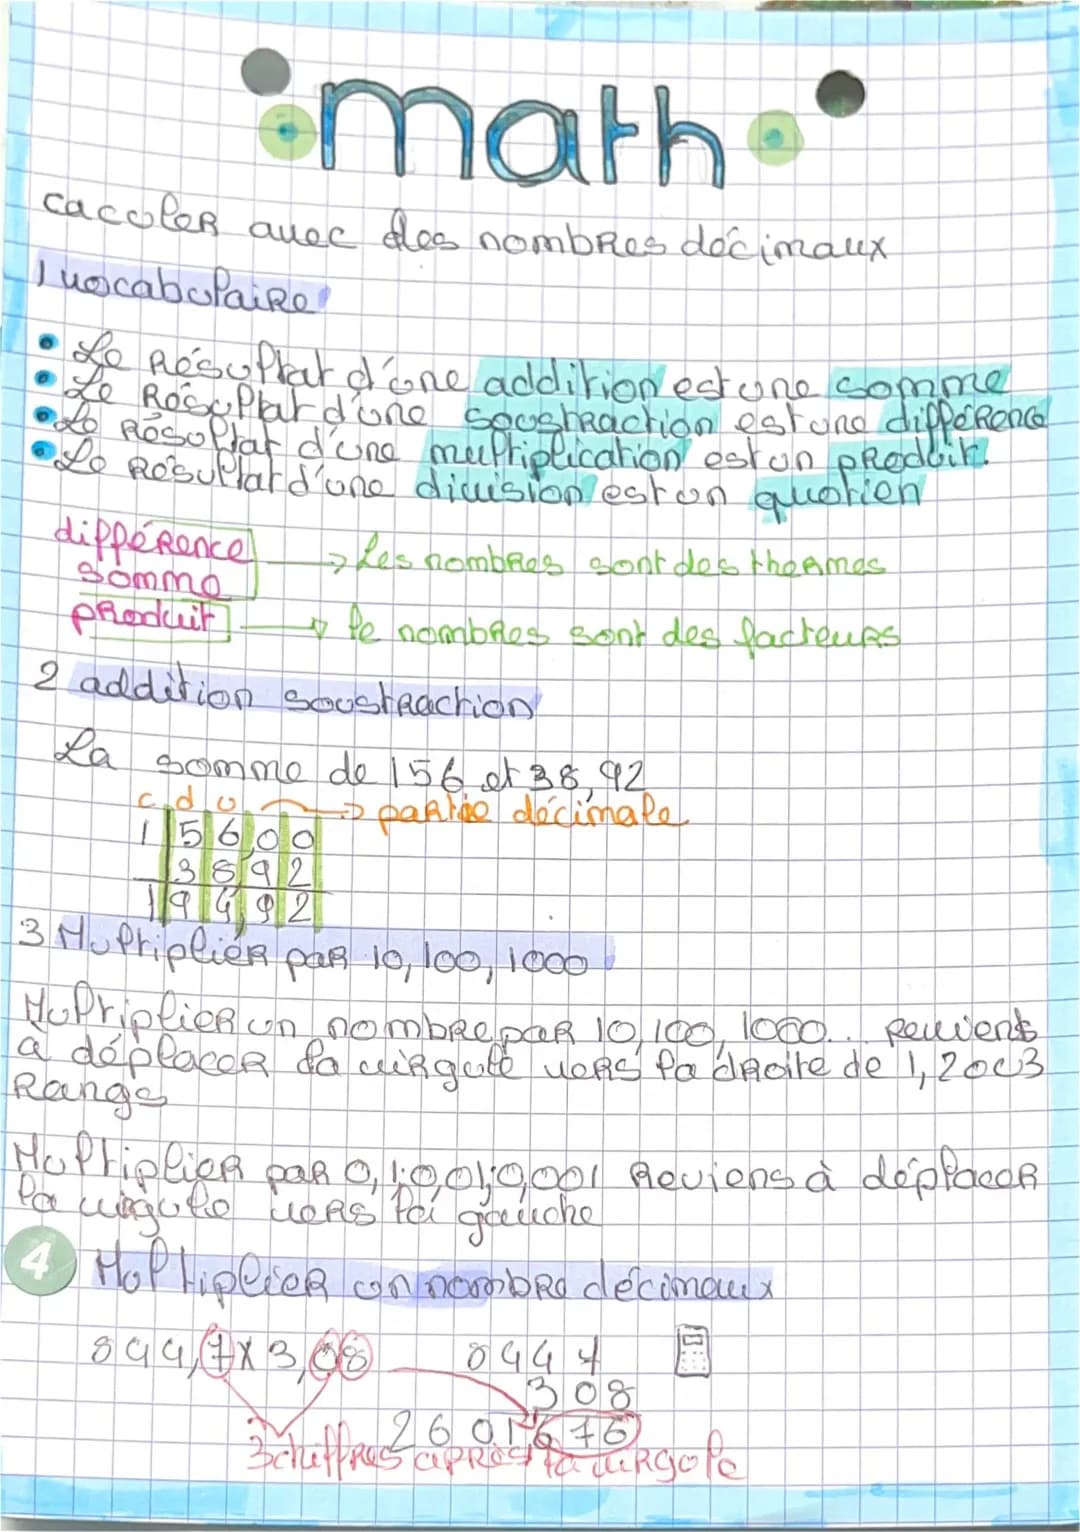 math
cacculer avec des nombres décimaux
1 vocabulaire
Le Résultat d'une addition est une somme
Le Résultat d'une soustraction est une différence
Le Résultat d'une multiplication est un produit.
Le Résultat d'une division est un quotien
différence
somme
→ Les nombres sont des thermes
produit
→ le nombres sont des facteurs
2 addition soustraction
La somme de 156 et 38,92
c d u → partie décimale
156,00
38,92
194,92
3 Multiplier par 10, 100, 1000
Multiplier un nombre par 10, 100, 1000... revient
à déplacer la virgule vers la droite de 1, 2 ou 3
Rangs
Multiplier par 0,1;0,01;0,001 Reviens à déplacer
la virgule vers la gauche
4 Multiplier un nombre décimaux
844,7x3,08 8447
308
2601676
3 chiffres après la virgule